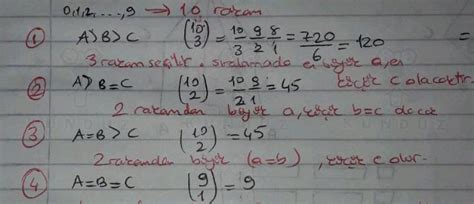 0,1,2,...,9 → 10 rakam
① A>B>C (10 3) = 10/3 9/2 8/1 = 720/6 = 120 =
3 rakam seçilir. sıralamada en büyük a, en
küçük c olacaktır.
② A>B=C (10 2) = 10/2 9/1 = 45
2 rakamdan büyük a, küçük b=c olacak
③ A=B>C (10 2) = 45
2 rakamdan büyük (a=b), küçük c olur.
④ A=B=C (9 1) = 9